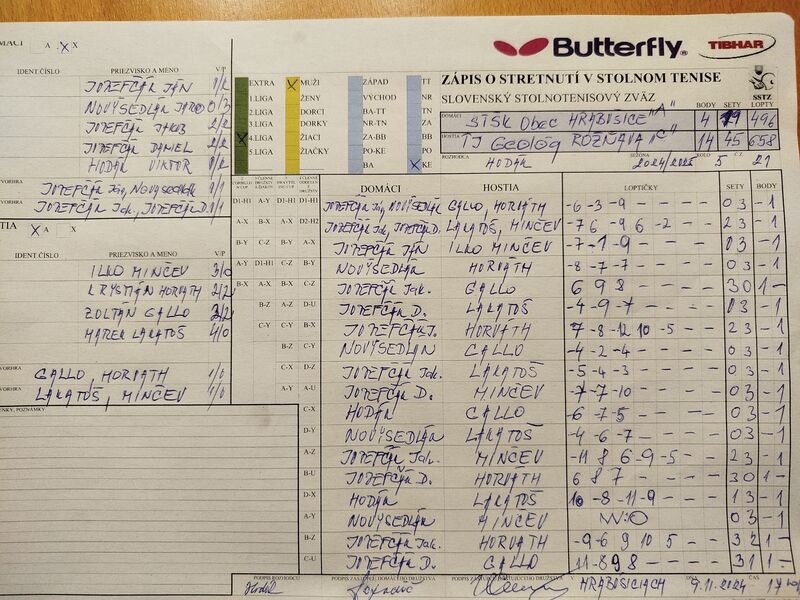 Butterfly TIBHAR
ZÁPIS O STRETNUTÍ V STOLNOM TENISE
SLOVENSKÝ STOLNOTENISOVÝ ZVÄZ
SSTZ
DOMÁCI STŠK Obec HRABUŠICE "A" BODY 4 SETY 19 LOPTY 496
HOSTIA TJ Geológ ROŽŇAVA "C" 14 45 658
ROZHODCA HODÁK SEZÓNA 2024/2025 KOLO 5 Č.Z. 21
A X
IDENT.ČÍSLO PRIEZVISKO A MENO V/P
JOZEFČÁK JÁN
NOVÝSEDLÁK 0/3
JOZEFČÁK JAKUB 2/2
JOZEFČÁK DANIEL 2/2
HODÁK VIKTOR
JOZEFČÁK Ján, Novýsedlák 0/1
JOZEFČÁK Jak., JOZEFČÁK D. 0/1
X A
IDENT.ČÍSLO PRIEZVISKO A MENO V/P
ILKO MINČEV 3/0
KRYSTIÁN HORVÁTH 2/2
ZOLTÁN GALLO
MAREK LAKATOŠ 4/0
GALLO, HORVATH 1/0
LAKATOŠ, MINČEV 1/0
EXTRA X MUŽI ZÁPAD TT
1.LIGA ŽENY VÝCHOD NR
2.LIGA DORCI BA-TT TN
3.LIGA DORKY NR-TN ZA
X 4.LIGA ŽIACI ZA-BB BB
5.LIGA ŽIAČKY PO-KE PO
BA X KE
DOMÁCI HOSTIA LOPTIČKY SETY BODY
D1-H1 A-Y A-Y D1-H1 JOZEFČÁK Ján, NOVÝSEDLÁK GALLO, HORVÁTH -6 -3 -9 - - - - 0 3 - 1
A-X B-X D2-H2 JOZEFČÁK Jak, JOZEFČÁK D. LAKATOŠ, MINČEV -7 6 -9 6 -2 - - 2 3 - 1
B-Y C-Z B-Y A-X JOZEFČÁK JÁN ILKO MINČEV -7 -1 -9 - - - - 0 3 - 1
A-Y D1-H1 C-Z B-Y NOVÝSEDLÁK HORVÁTH -8 -7 -7 - - - - 0 3 - 1
B-X A-X B-X C-Z JOZEFČÁK Jak. GALLO 6 9 8 - - - - 3 0 1 -
B-Z A-Z D-U JOZEFČÁK D. LAKATOŠ -4 -9 -7 - - - - 0 3 - 1
C-Y C-Y B-X JOZEFČÁK J. HORVÁTH 7 -8 -12 10 -5 - - 2 3 - 1
B-Z C-Y NOVÝSEDLÁK GALLO -4 -2 -4 - - - - 0 3 - 1
C-X D-Z JOZEFČÁK Jak. LAKATOŠ -5 -4 -3 - - - - 0 3 - 1
A-Y A-U JOZEFČÁK D. MINČEV -7 -7 -10 - - - - 0 3 - 1
C-X HODÁK GALLO 0 3 - 1
D-Y NOVÝSEDLÁK LAKATOŠ -4 -6 -7 - - - - 0 3 - 1
A-Z JOZEFČÁK Jak. MINČEV -11 8 6 -9 -5 - - 2 3 - 1
B-U JOZEFČÁK D. HORVÁTH 6 8 7 - - - - 3 0 1 -
D-X HODÁK LAKATOŠ 10 -8 -11 -9 - - - 1 3 - 1
A-Y NOVÝSEDLÁK MINČEV W:O 0 3 - 1
B-Z JOZEFČÁK Jak. HORVÁTH -9 6 9 10 5 - - 3 1 -
C-U JOZEFČÁK D. GALLO 3 1 1 -
PODPIS ROZHODCU PODPIS ZÁSTUPCU DOMÁCEHO DRUŽSTVA V HRABUŠICIACH DŇA 9.11.2024 ČAS 17